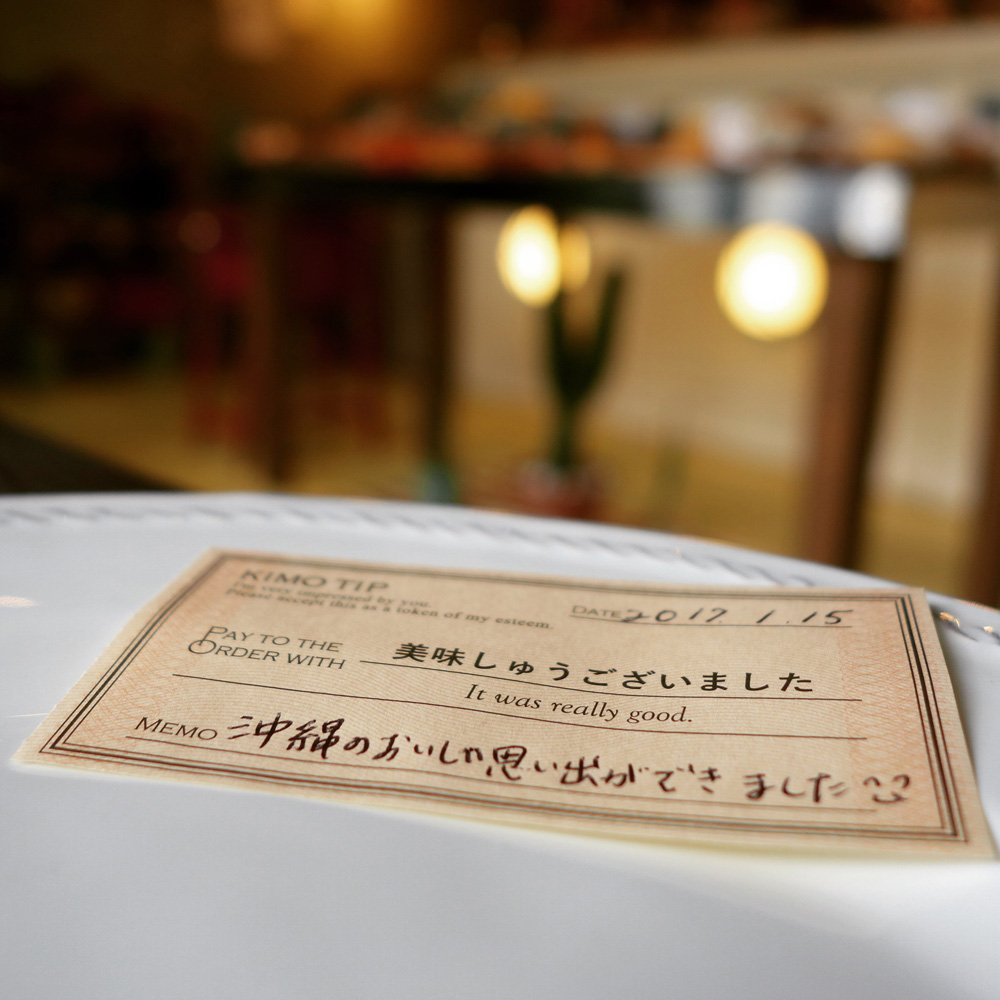 KIMO TIP
I'm very impressed by you.
Please accept this as a token of my esteem.
DATE 2017. 1. 15
PAY TO THE
ORDER WITH
美味しゅうございました
It was really good.
MEMO 沖縄のおいしゃ思い出ができました